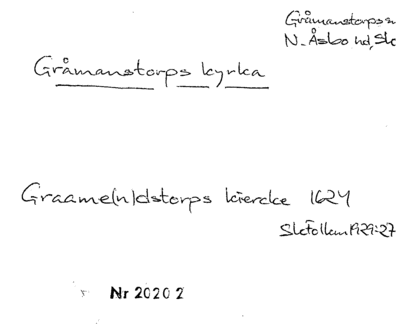 Gråmanstorps
N. Åsbo hd, Sk
Gråmanstorps kyrka
Graame(n)dstorps kiercke 1624
1929:27
Nr 2020 2